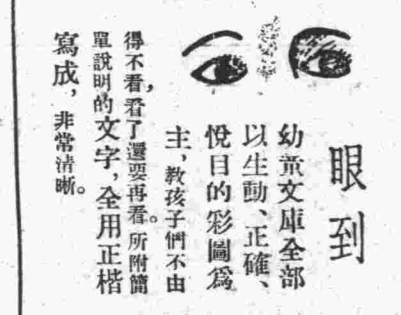 眼到
幼童文庫全部
以生動、正確、
悅目的彩圖爲
主，教孩子們不由
得不看，看了還要再看。所附簡
單說明的文字，全用正楷
寫成，非常清晰。